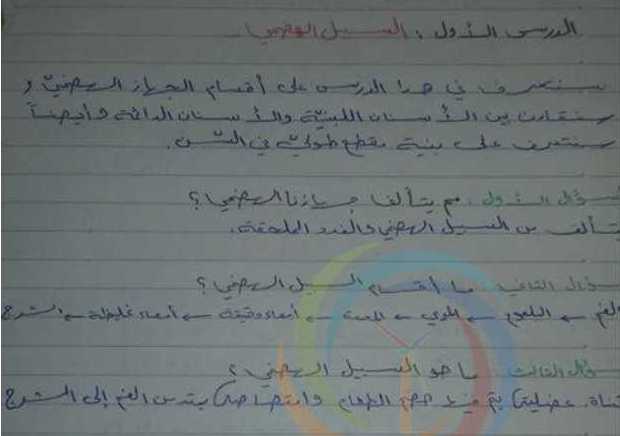 الدرس الأول : السبيل الهضمي
سنتعرف في هذا الدرس على أقسام الجهاز الهضمي و
سنقارن بين الأسنان اللبنية والأسنان الدائمة وأيضاً
سنتعرف على بنية مقطع طولي في السن.
سؤال الأول : مم يتألف جهازنا الهضمي؟
يتألف من السبيل الهضمي والغدد الملحقة.
سؤال الثاني : ما أقسام السبيل الهضمي؟
الفم ← البلعوم ← المري ← المعدة ← أمعاء دقيقة ← أمعاء غليظة ← الشرج
سؤال الثالث : ما هو السبيل الهضمي؟
قناة عضلية يتم فيها هضم الطعام وامتصاصه يمتد من الفم إلى الشرج